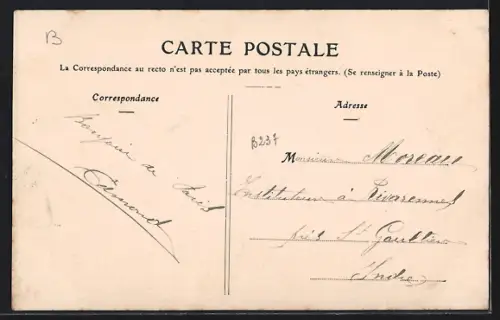 B
CARTE POSTALE
La Correspondance au recto n'est pas acceptée par tous les pays étrangers. (Se renseigner à la Poste)
Correspondance
Adresse
Bonjour de Paris
Edmond
B237
Monsieur Moreau
Instituteur à Rivarennes
près St Gaultier
Indre